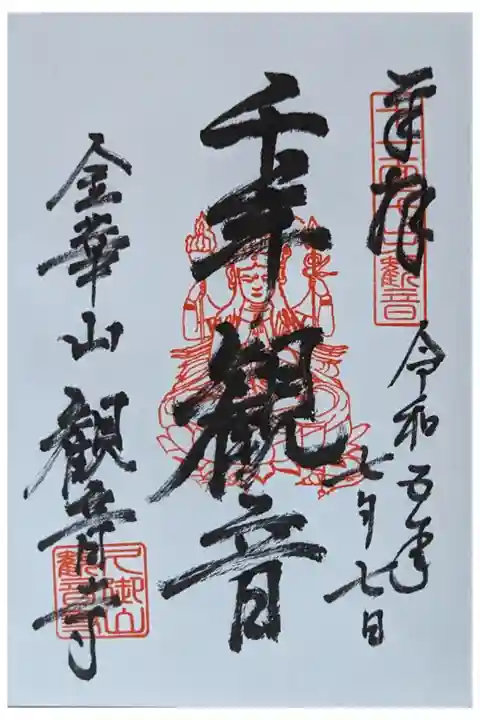 奉拝
令和五年
七月七日
千手観音
金華山 観音寺